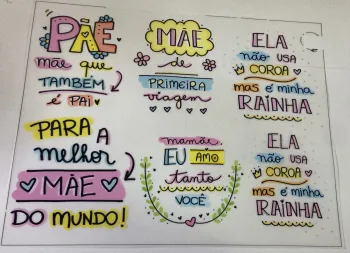 PÃE
mãe que
TAMBÉM
é PAI
MÃE
de
PRIMEIRA
viagem
ELA
não USA
COROA
mas é minha
RAINHA
PARA A
melhor
MÃE
DO MUNDO!
mamãe,
EU AMO
tanto
VOCÊ
ELA
não USA
COROA
mas é minha
RAINHA